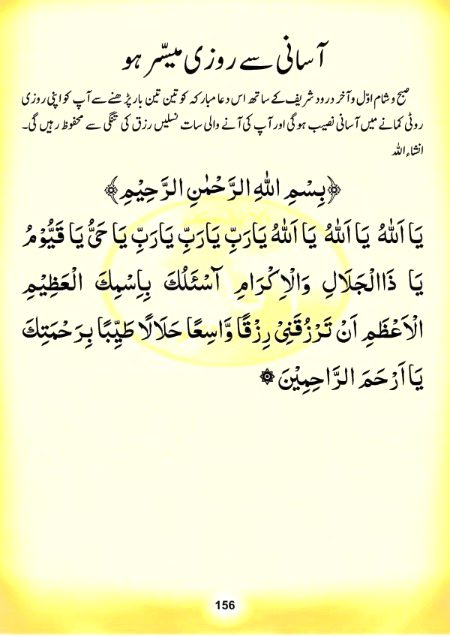 آسانی سے روزی میسّر ہو
صبح و شام اوّل و آخر درود شریف کے ساتھ اس دعا مبارکہ کو تین تین بار پڑھنے سے آپ کو اپنی روزی
روٹی کمانے میں آسانی نصیب ہوگی اور آپ کی آنے والی سات نسلیں رزق کی تنگی سے محفوظ رہیں گی۔
انشاء اللہ
﴿بِسْمِ اللهِ الرَّحْمٰنِ الرَّحِيْمِ﴾
يَا اَللهُ يَا اَللهُ يَا اَللهُ يَارَبِّ يَارَبِّ يَارَبِّ يَا حَيُّ يَا قَيُّوْمُ
يَا ذَاالْجَلَالِ وَالْاِكْرَامِ اَسْئَلُكَ بِاِسْمِكَ الْعَظِيْمِ
الْاَعْظَمِ اَنْ تَرْزُقَنِىْ رِزْقًا وَّاسِعًا حَلَالًا طَيِّبًا بِرَحْمَتِكَ
يَا اَرْحَمَ الرَّاحِمِيْنَ ۞
156